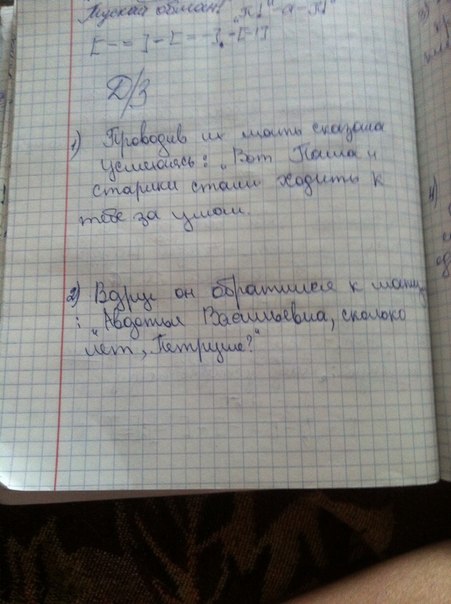 Мускай обман! "П!" -а- П!"
[- = ] - [ = -]. - [-!]
Д/З
1) Проводив их мать сказала
усмехаясь: „Вот Паша и
старики стали ходить к
тебе за умом.
2) Вдруг он обратился к матуш
: „Авдотья Васильевна, сколько
лет, Петруше?"
3)
4)